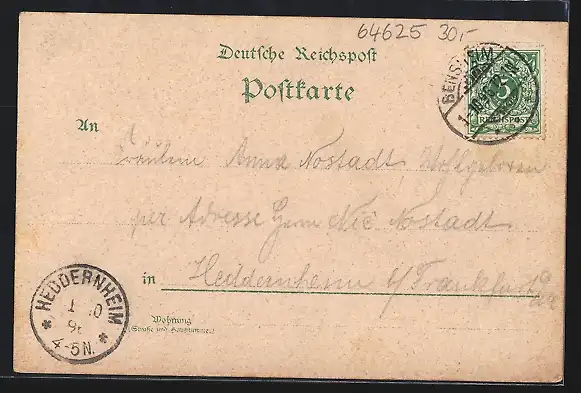 64625 30,-
Deutsche Reichspost
Postkarte
BENSHEIM
5
REICHSPOST
An
Fräulein Anna Nostadt Wohlgeboren
per Adresse Herrn Nic Nostadt
in Heddernheim b/Frankfurt a
HEDDERNHEIM
1 10
9
4-5N.
Wohnung
(Straße und Hausnummer)